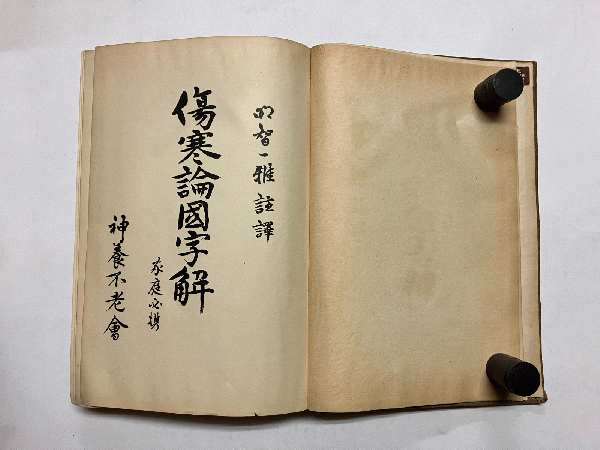 明智一雅註譯
傷寒論國字解
家庭必携
神養不老會